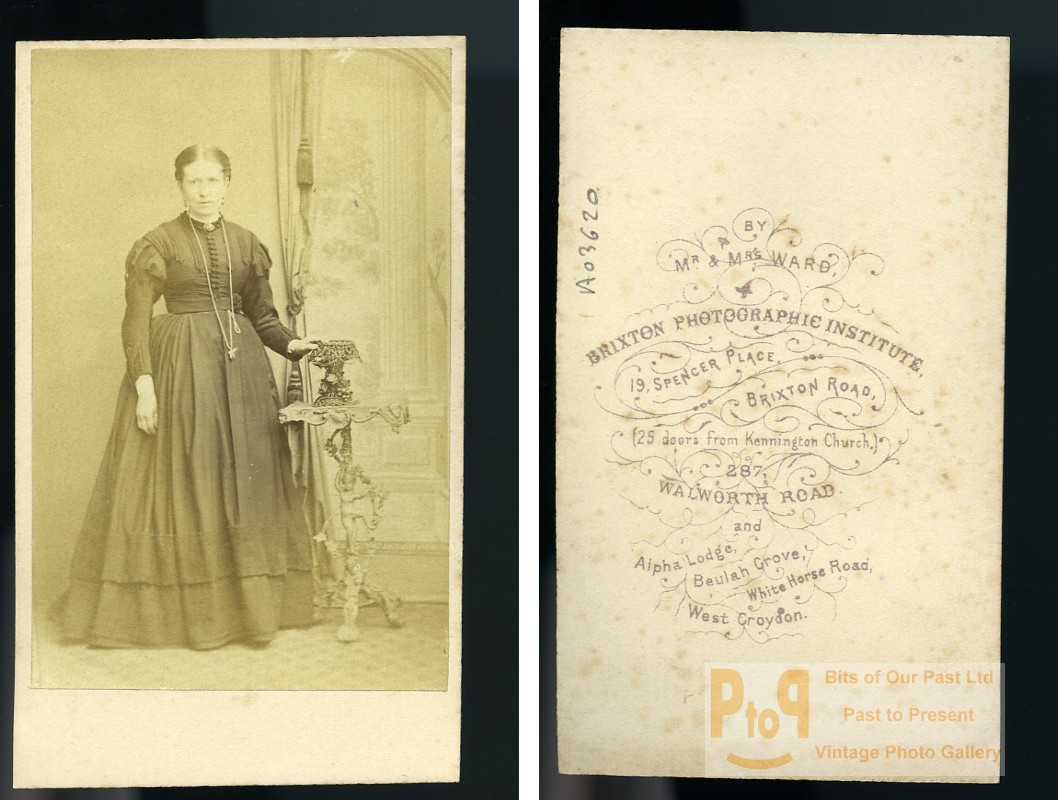 1A03620
BY
MR & MRS WARD,
BRIXTON PHOTOGRAPHIC INSTITUTE,
19, SPENCER PLACE,
BRIXTON ROAD,
(25 doors from Kennington Church,)
287,
WALWORTH ROAD.
and
Alpha Lodge,
Beulah Grove,
White Horse Road,
West Croydon.
PtoP
Bits of Our Past Ltd
Past to Present
Vintage Photo Gallery